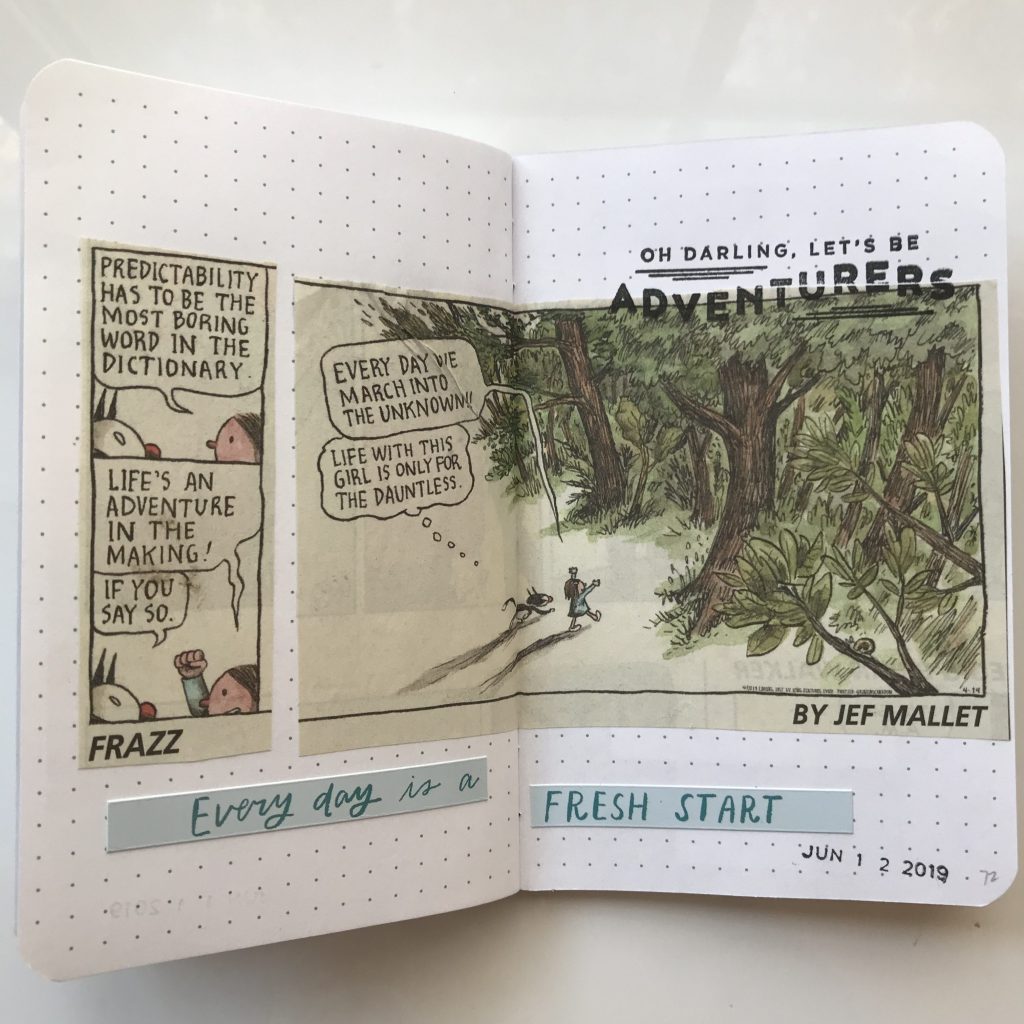 PREDICTABILITY
HAS TO BE THE
MOST BORING
WORD IN THE
DICTIONARY.
LIFE'S AN
ADVENTURE
IN THE
MAKING!
IF YOU
SAY SO.
FRAZZ
EVERY DAY WE
MARCH INTO
THE UNKNOWN!!
LIFE WITH THIS
GIRL IS ONLY FOR
THE DAUNTLESS.
OH DARLING, LET'S BE
ADVENTURERS
4-14
BY JEF MALLET
Every day is a
FRESH START
JUN 1 2 2019
72